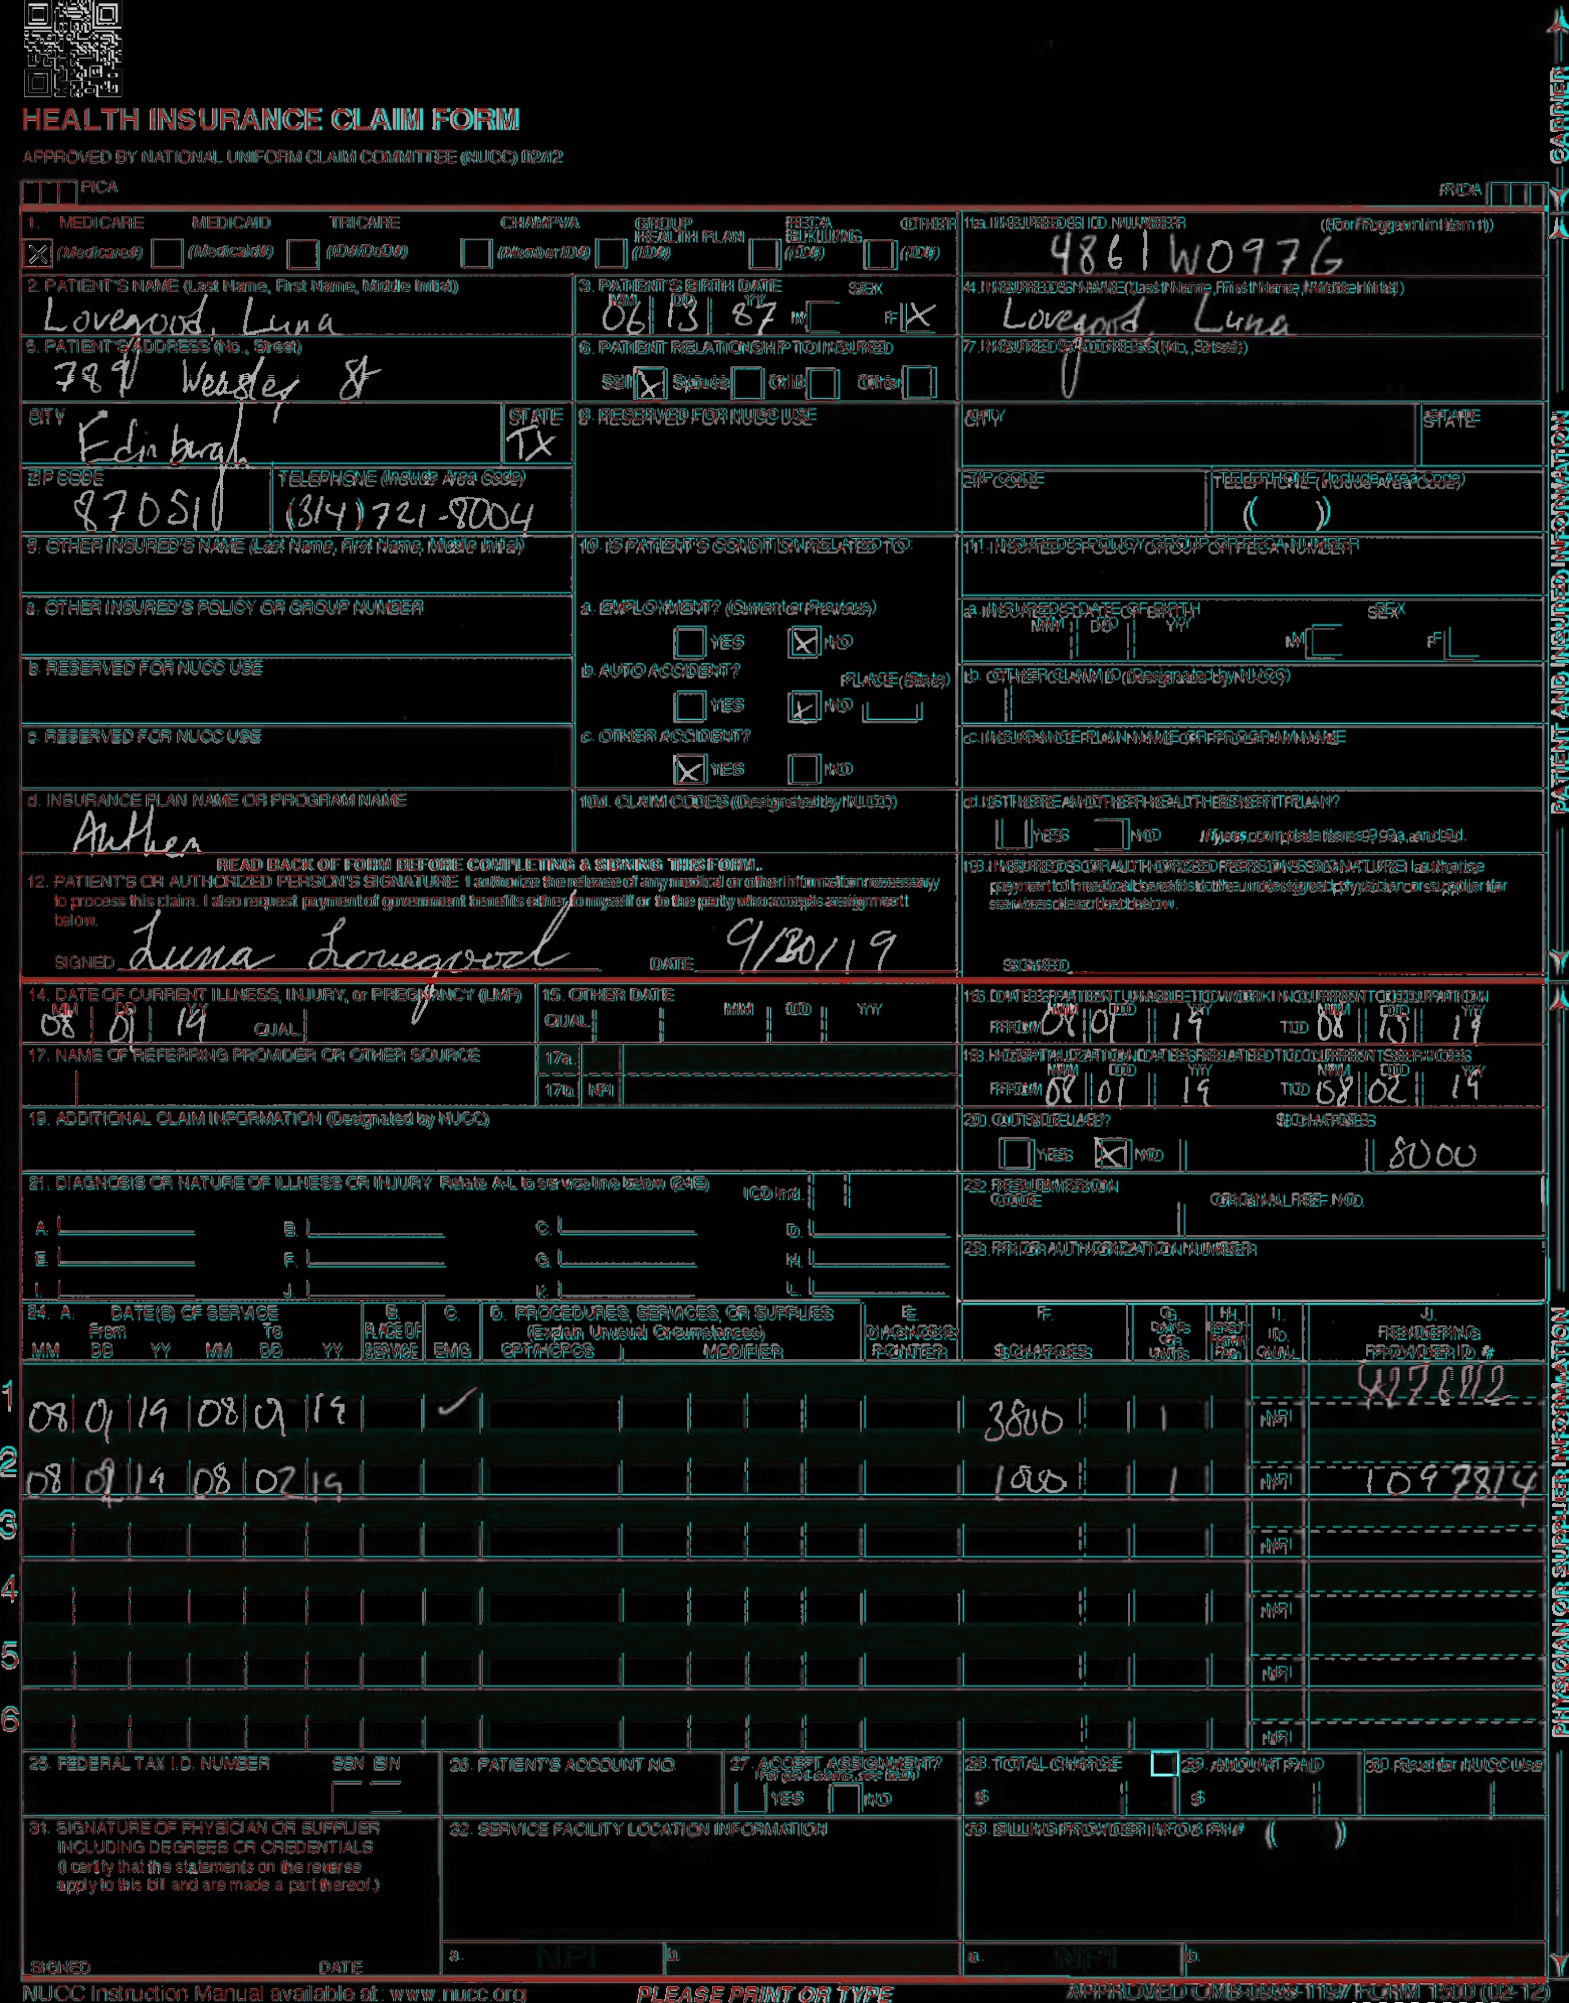 HEALTH INSURANCE CLAIM FORM
APPROVED BY NATIONAL UNIFORM CLAIM COMMITTEE (NUCC) 02/12
PICA PICA
1. MEDICARE MEDICAID TRICARE CHAMPVA GROUP HEALTH PLAN FECA BLK LUNG OTHER
X (Medicare#) (Medicaid#) (ID#/DoD#) (Member ID#) (ID#) (ID#) (ID#)
1a. INSURED'S I.D. NUMBER (For Program in Item 1)
4861W097G
2. PATIENT'S NAME (Last Name, First Name, Middle Initial)
Lovegood, Luna
3. PATIENT'S BIRTH DATE SEX
MM DD YY
06 13 87 M F X
4. INSURED'S NAME (Last Name, First Name, Middle Initial)
Lovegood, Luna
5. PATIENT'S ADDRESS (No., Street)
789 Weasley St
6. PATIENT RELATIONSHIP TO INSURED
Self X Spouse Child Other
7. INSURED'S ADDRESS (No., Street)
CITY STATE
Edinburgh TX
8. RESERVED FOR NUCC USE
CITY STATE
ZIP CODE TELEPHONE (Include Area Code)
87051 (314) 721-8004
ZIP CODE TELEPHONE (Include Area Code)
( )
9. OTHER INSURED'S NAME (Last Name, First Name, Middle Initial)
10. IS PATIENT'S CONDITION RELATED TO:
11. INSURED'S POLICY GROUP OR FECA NUMBER
a. OTHER INSURED'S POLICY OR GROUP NUMBER
a. EMPLOYMENT? (Current or Previous)
YES X NO
a. INSURED'S DATE OF BIRTH SEX
MM DD YY M F
b. RESERVED FOR NUCC USE
b. AUTO ACCIDENT? PLACE (State)
YES X NO
b. OTHER CLAIM ID (Designated by NUCC)
c. RESERVED FOR NUCC USE
c. OTHER ACCIDENT?
X YES NO
c. INSURANCE PLAN NAME OR PROGRAM NAME
d. INSURANCE PLAN NAME OR PROGRAM NAME
Anthem
10d. CLAIM CODES (Designated by NUCC)
d. IS THERE ANOTHER HEALTH BENEFIT PLAN?
YES NO If yes, complete items 9, 9a, and 9d.
READ BACK OF FORM BEFORE COMPLETING & SIGNING THIS FORM.
12. PATIENT'S OR AUTHORIZED PERSON'S SIGNATURE I authorize the release of any medical or other information necessary
to process this claim. I also request payment of government benefits either to myself or to the party who accepts assignment
below.
SIGNED Luna Lovegood DATE 9/30/19
13. INSURED'S OR AUTHORIZED PERSON'S SIGNATURE I authorize
payment of medical benefits to the undersigned physician or supplier for
services described below.
SIGNED
14. DATE OF CURRENT ILLNESS, INJURY, or PREGNANCY (LMP)
MM DD YY
08 01 19 QUAL.
15. OTHER DATE
QUAL. MM DD YY
16. DATES PATIENT UNABLE TO WORK IN CURRENT OCCUPATION
MM DD YY MM DD YY
FROM 08 01 19 TO 08 15 19
17. NAME OF REFERRING PROVIDER OR OTHER SOURCE
17a.
17b. NPI
18. HOSPITALIZATION DATES RELATED TO CURRENT SERVICES
MM DD YY MM DD YY
FROM 08 01 19 TO 08 02 19
19. ADDITIONAL CLAIM INFORMATION (Designated by NUCC)
20. OUTSIDE LAB? $ CHARGES
YES X NO 8000
21. DIAGNOSIS OR NATURE OF ILLNESS OR INJURY Relate A-L to service line below (24E) ICD Ind.
A. B. C. D.
E. F. G. H.
I. J. K. L.
22. RESUBMISSION CODE ORIGINAL REF. NO.
23. PRIOR AUTHORIZATION NUMBER
24. A. DATE(S) OF SERVICE B. C. D. PROCEDURES, SERVICES, OR SUPPLIES E. F. G. H. I. J.
From To PLACE OF SERVICE (Explain Unusual Circumstances) DIAGNOSIS POINTER DAYS OR UNITS ID. QUAL. RENDERING PROVIDER ID. #
MM DD YY MM DD YY EMG CPT/HCPCS MODIFIER $ CHARGES
1 08 01 19 08 01 19 ✓ 3800 1 NPI
2 08 01 19 08 02 19 1000 1 NPI 1097814
3 NPI
4 NPI
5 NPI
6 NPI
25. FEDERAL TAX I.D. NUMBER SSN EIN
26. PATIENT'S ACCOUNT NO.
27. ACCEPT ASSIGNMENT?
(For govt. claims, see back)
YES NO
28. TOTAL CHARGE
$
29. AMOUNT PAID
$
30. Rsvd for NUCC Use
31. SIGNATURE OF PHYSICIAN OR SUPPLIER
INCLUDING DEGREES OR CREDENTIALS
(I certify that the statements on the reverse
apply to this bill and are made a part thereof.)
SIGNED DATE
32. SERVICE FACILITY LOCATION INFORMATION
a. NPI b.
33. BILLING PROVIDER INFO & PH# ( )
a. NPI b.
NUCC Instruction Manual available at: www.nucc.org
PLEASE PRINT OR TYPE
APPROVED OMB-0938-1197 FORM 1500 (02-12)
CARRIER
PATIENT AND INSURED INFORMATION
PHYSICIAN OR SUPPLIER INFORMATION